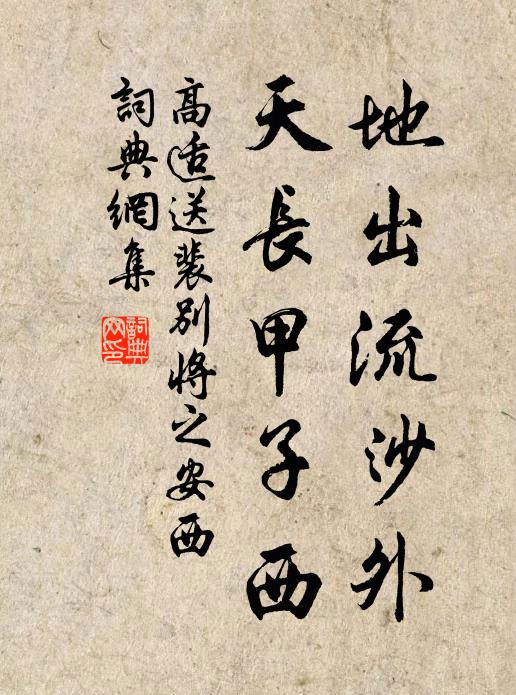 地出流沙外
天長甲子西
高适送裴別将之安西
詞典網集
詞典
网印